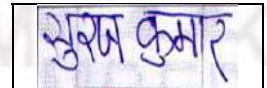 सुरज कुमार